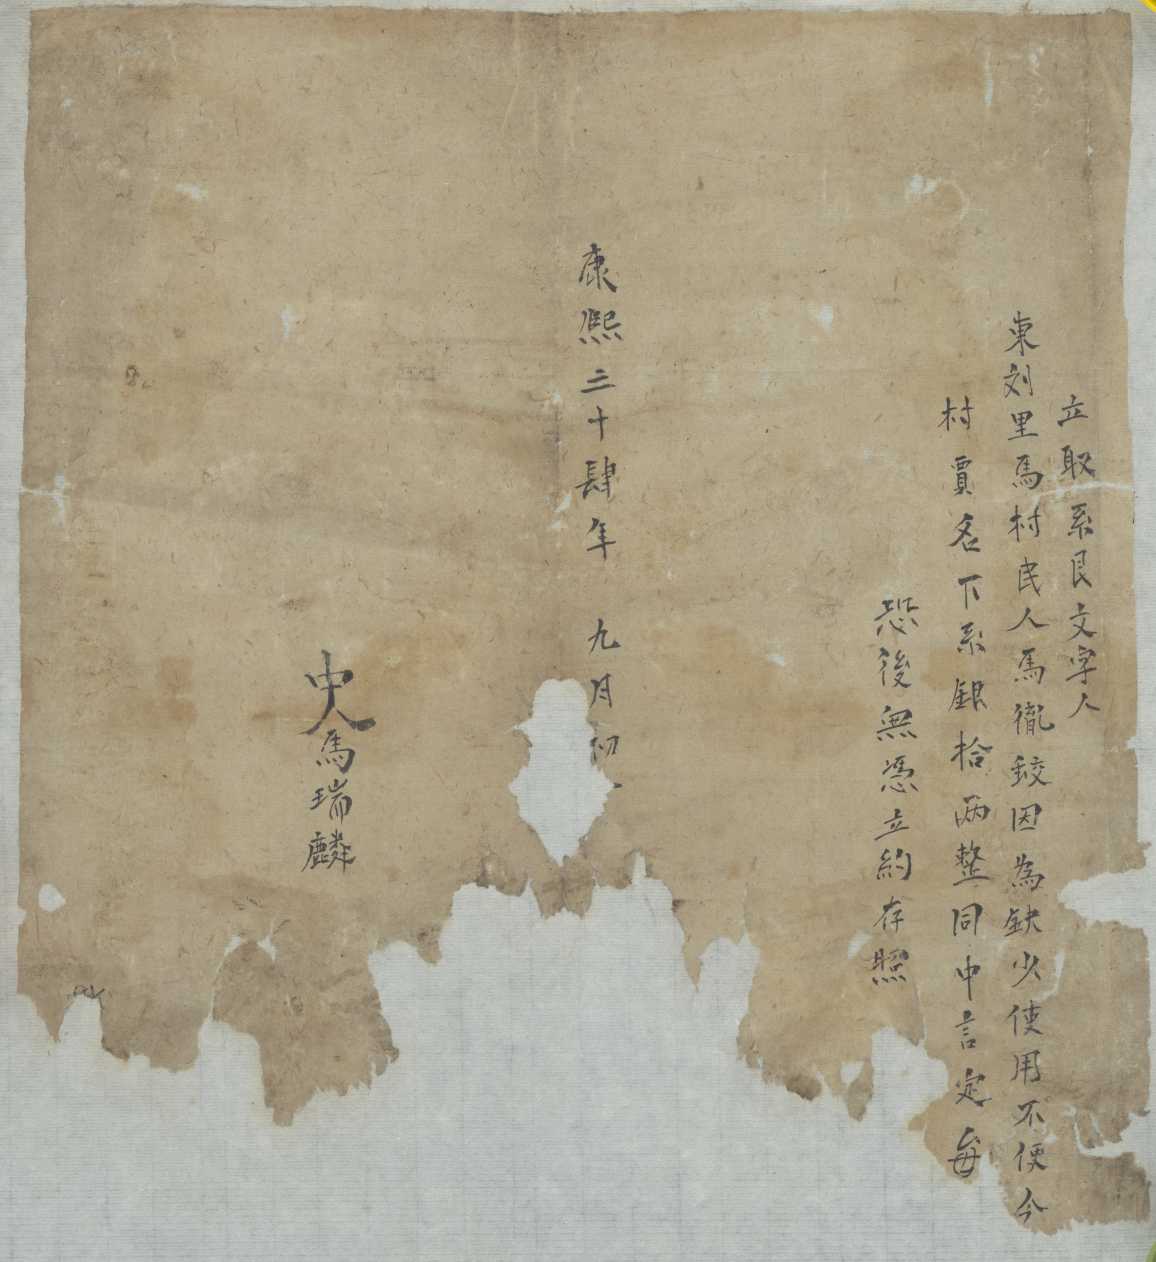 立取系艮文字人
東刘里馬村民人馬 因為缺少使用不便今
村賈名下系銀拾两整同中言定每
恐後無憑立約存照
康熙二十肆年 九月初
中人馬瑞麟